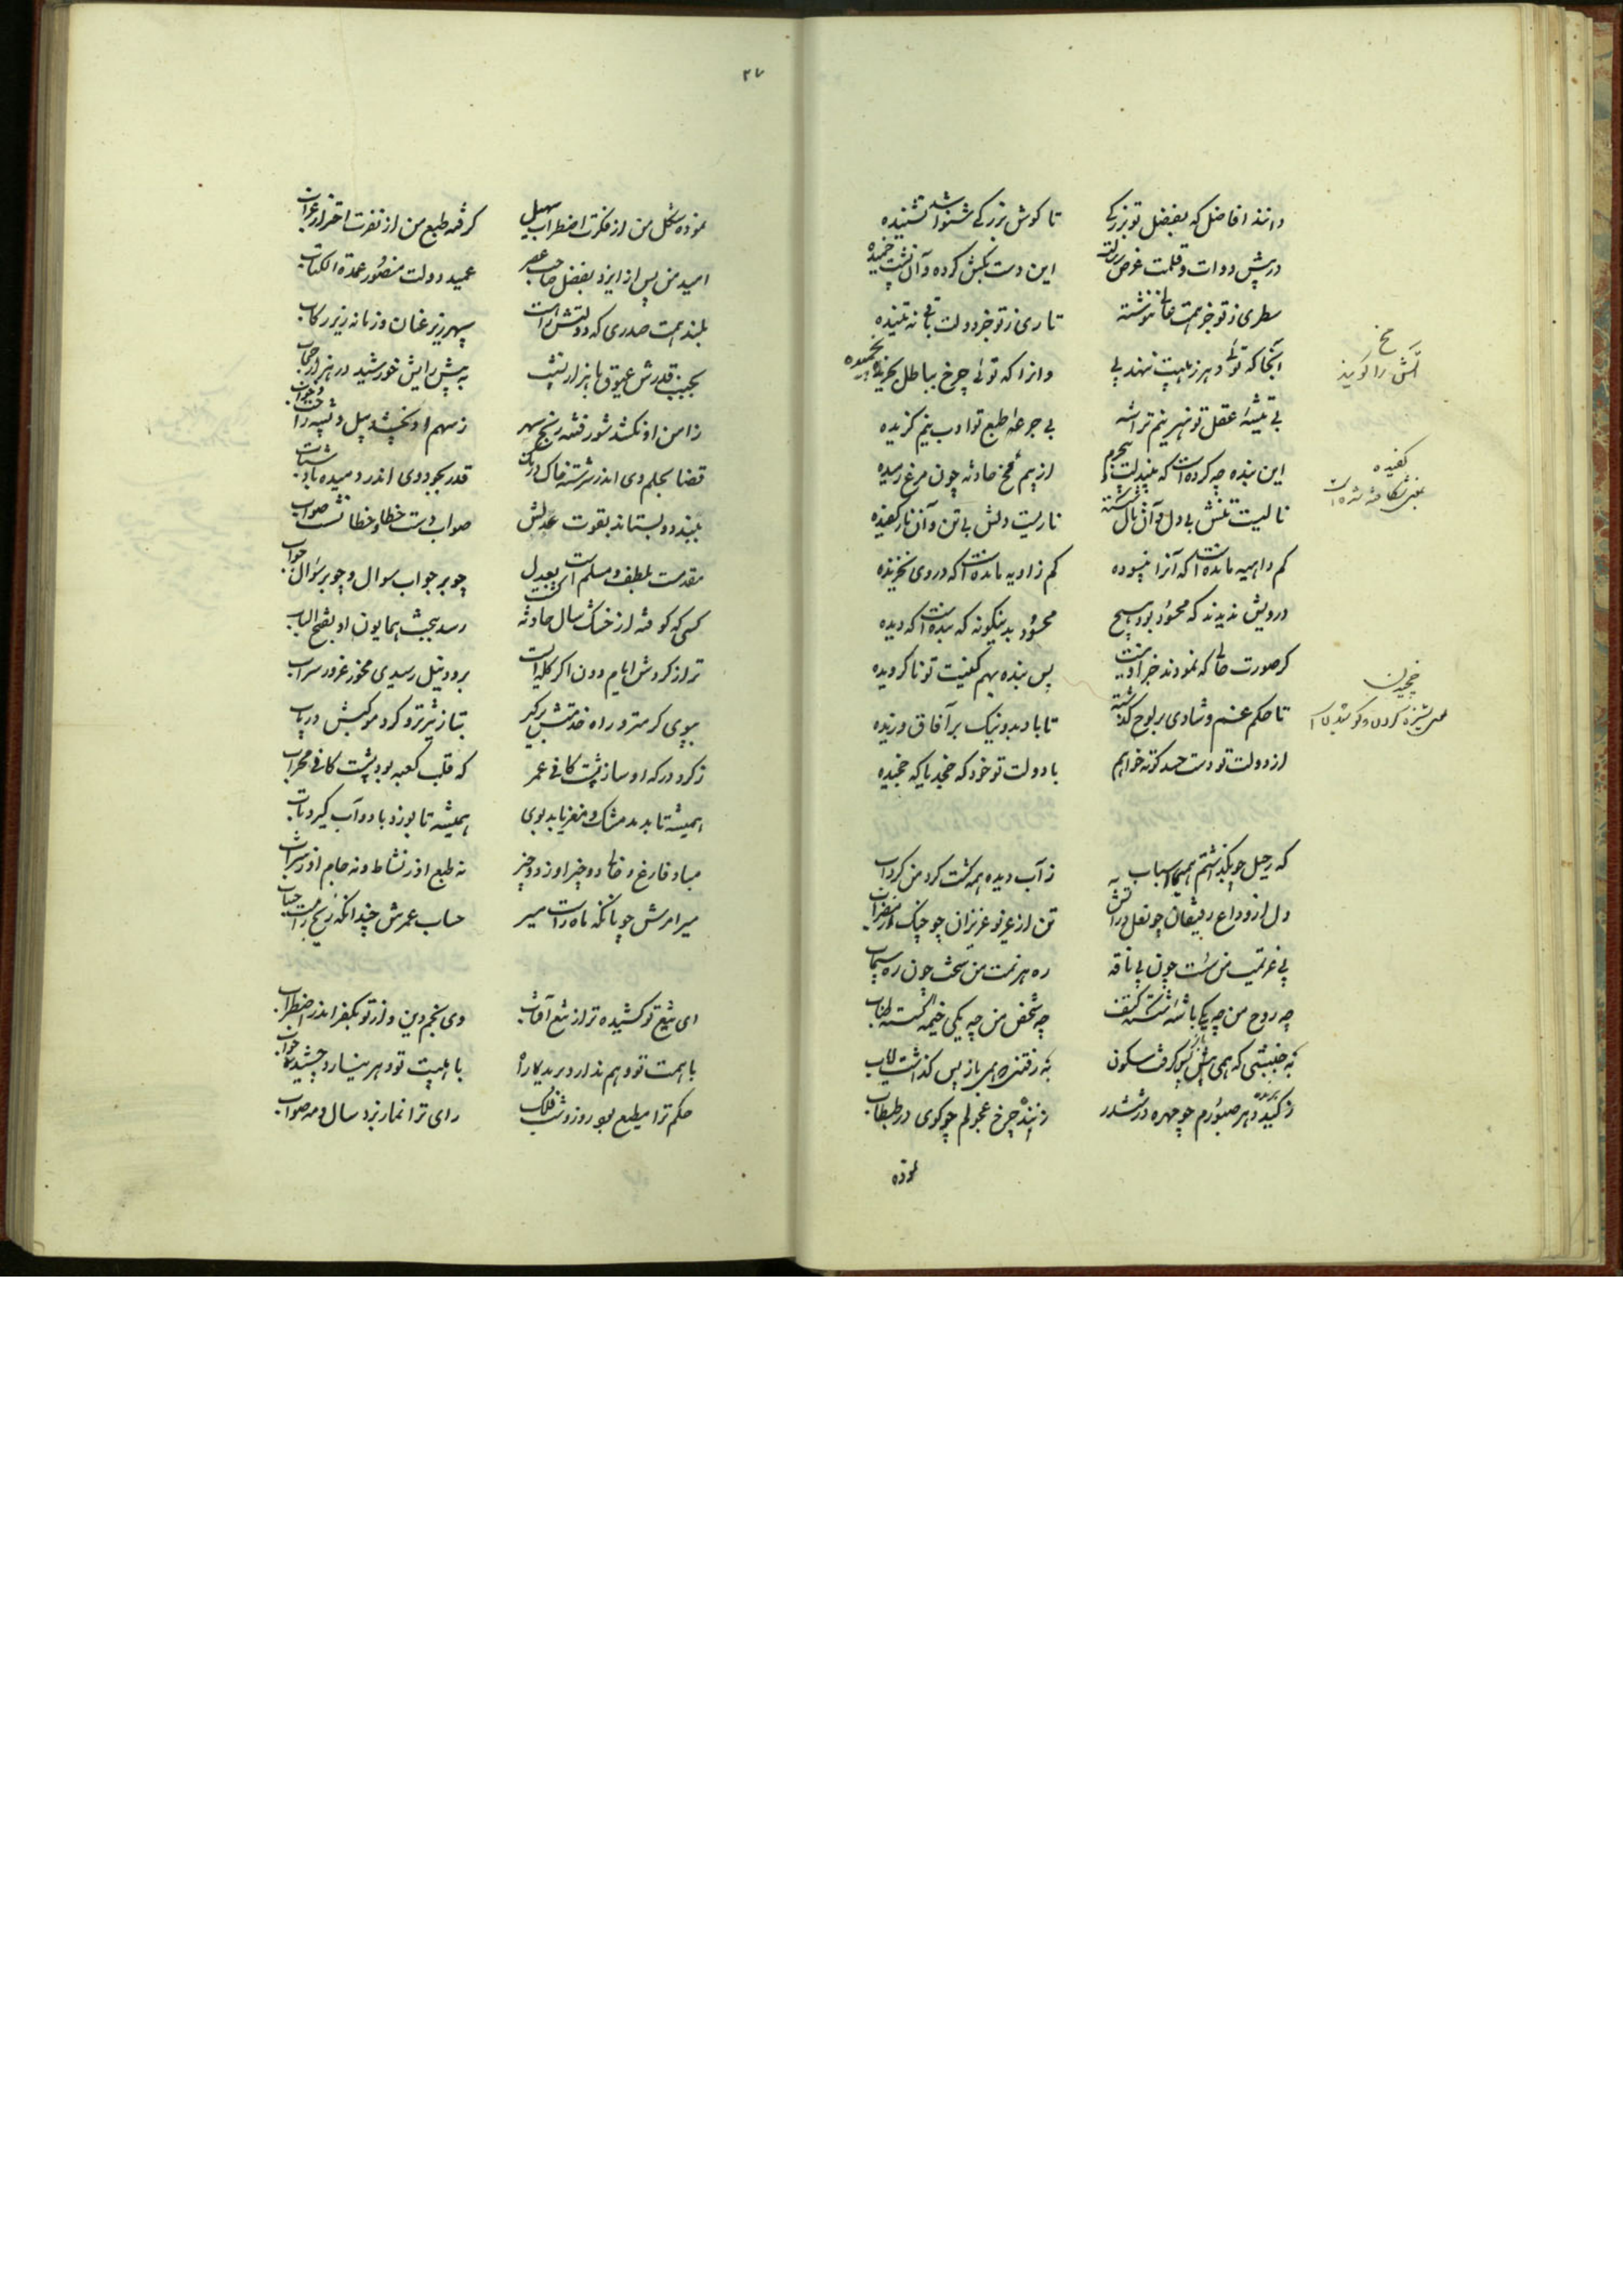 دانند افاضل که بفضل تو بزرگی تا گوش بزرگی شنوا شد نشنیده
در پیش دوات و قلمت عرض رسالت این دست بکش کرده و آن پشت خمیده
سطری ز تو جز همت عالی ننوشته تاری ز تو جز دولت باقی نه تنیده
آنجا که توئی دهر ز هیبت ننهد پی وانرا که توئی چرخ بباطل
بی تیشه عقل تو هنر نیم تراشه بی جرعه طبع تو ادب نیم گزیده
این بنده چه کرده است که بی جرم از بیم فخ حادثه چون مرغ رمیده
نالیست تنش بی دل و آن نال شکسته ناریست دلش بی تن و آن نار کفیده
کم داهیه مانده است که آنرا نپسوده کم زاویه مانده است که در وی نخزیده
درویش ندیدند که محسود بود هیچ محسود بدینگونه که بنده است که دیده
گر صورت حالی که نمودند جز اینست پس بنده بهم کفیت تو ناگرویده
تا حکم غم و شادی بر لوح گذشته تا باد بد و نیک بر آفاق وزیده
از دولت تو دست حسد کوته خواهم با دولت تو خود که خجد یا که خجیده
که رحیل چو بگذاشتم همه اسباب ز آب دیده همه گشت گرد من گرداب
دل از وداع رفیقان چو نعل در آتش تن از غریو عزیزان چو چنگ در مضراب
پی عزیمت من سست چون پی ناقه ره هزیمت من سخت چون ره سیماب
چه روح من چه یکی باشه شکسته کتف چه شخص من چه یکی خیمه گسسته طناب
نه جنبشی که همی پیش گیرد سکون نه رفتنی همی باز پس گذاشت ایاب
ز کید دهر صبورم چو مهره در ششدر زننده چرخ عجولم چو گوی در طبطاب
نموده
یخ
آتش را گویند
کفیده
بمعنی شکافته شده است
خجیدن
بمعنی ستیزه کردن و کوشیدن است
۲۷
نموده شکل من از فکرت اضطراب سهیل گرفته طبع من از نفرت احتراز غراب
امید من پس از ایزد بفضل صاحب عصر عمید دولت منصور عمدة الکتاب
بلند همت صدری که دولتش راست سپهر زیر عنان و زمانه زیر رکاب
بجیب قدرش عیوق با هزار نشیب به پیش رایش خورشید در هزار حجاب
ز امن او نکشد شور فتنه رنج سهر ز سهم او نچشد پیل و پشه راحت خواب
قضا بحلم وی اندر سرشته خاک درنگ قدر بجود وی اندر دمیده باد شتاب
ببندد و بستاند بقوت عدلش صواب دست خطا و خطا نشست صواب
مقدمست بلطف و مسلم است ببذل چو بر جواب سوال و چو بر سوال جواب
کسی که کوفته از خشک سال حادثه رسد بجشن همایون او بفتح الباب
ترا ز گردش ایام دون اگر گله ایست برود نیل رسیدی مخور غرور سراب
بپوی گرمتر و راه خدمتش برگیر بتاز تیزتر و گرد موکبش دریاب
ز گرد درگه او ساز پشت کافی عمر که قلب کعبه بود پشت کافی محراب
همیشه تا بدمد مشک و مغز یابد بوی همیشه تا بوزد باد و آب گیرد تاب
مباد فارغ و خالی دو چیز او ز دو چیز نه طبع او ز نشاط و نه جام او ز شراب
مسیر امرش چونانکه ماه راست مسیر حساب عمرش چندانکه رنج راست حساب
ای تیغ تو کشیده تر از تیغ آفتاب وی نجم دین و از تو بکفر اندر اضطراب
با همت تو وهم ندارد با هیبت تو دهر
حکم ترا مطیع بود روز و شب فلک رای ترا نماز برد سال و مه صواب